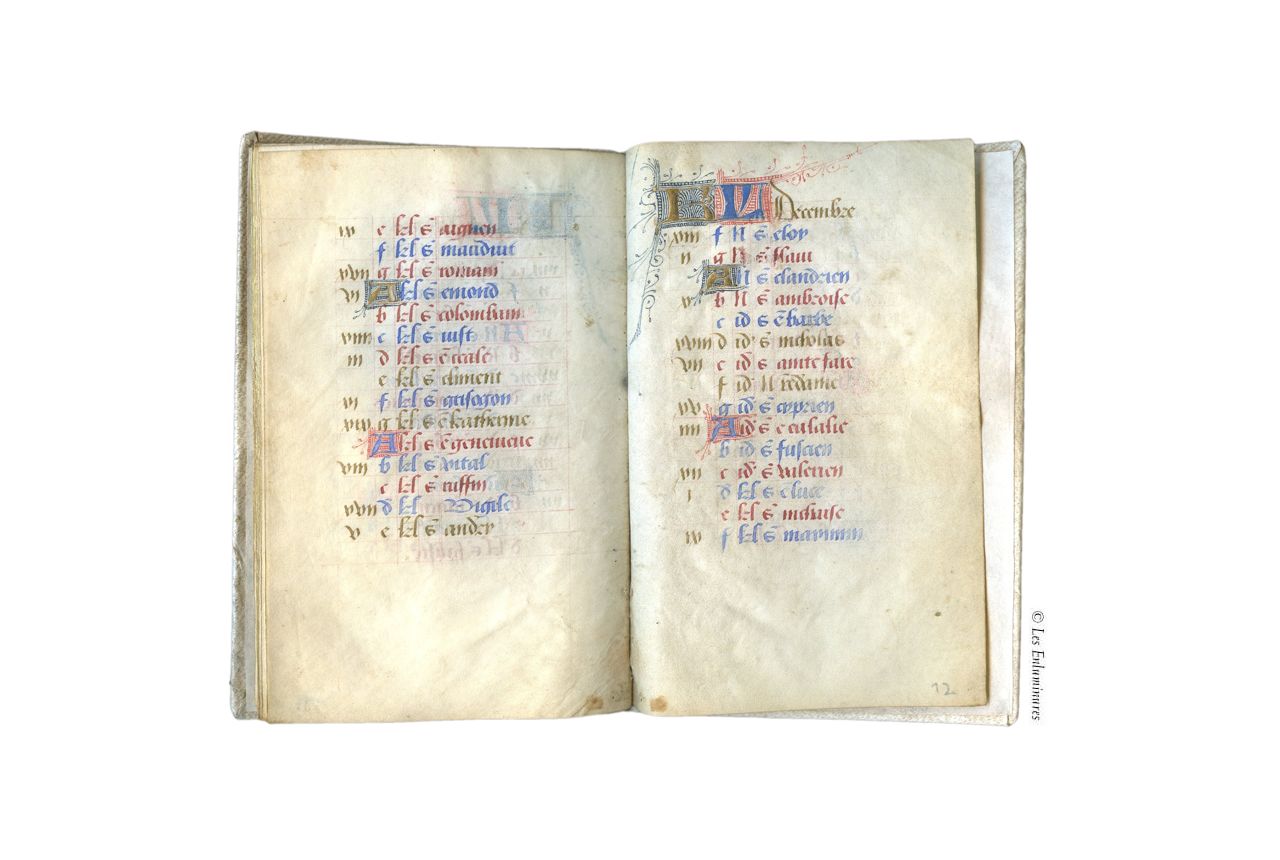 iv e kl s aignen
f kl s maudruit
xvii g kl s romain
vi A kl s emond
b kl s colombain
xiiii c kl s iust
iii d kl s cecile
e kl s climent
xi f kl s grisogon
xix g kl s katherine
A kl s genevieve
viii b kl s vital
c kl s ruffin
xvi d kl Vigile
v e kl s andry
KL Decembre
xiii f N s eloy
ii g N s
A N s
x b N s ambroise
c id s barbe
xviii d id s nicholas
vii e id s fare
f id Nredame
xv g id s cyprien
iiii A id s eulalie
b id s fuscien
xii c id s valerien
i d kl s luce
e kl s nichaise
ix f kl s maximin
12
© Les Enluminures